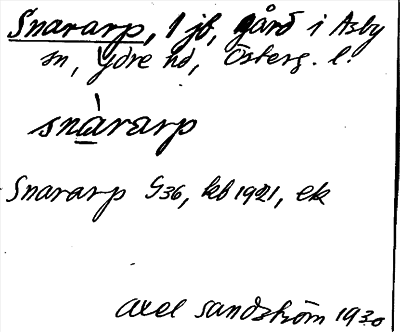 Snararp, 1 jb, gård i Asby
sn, Ydre hd, Österg. l.
snàrarp
Snararp G36, kb 1921, ek
Axel Sandström 1930